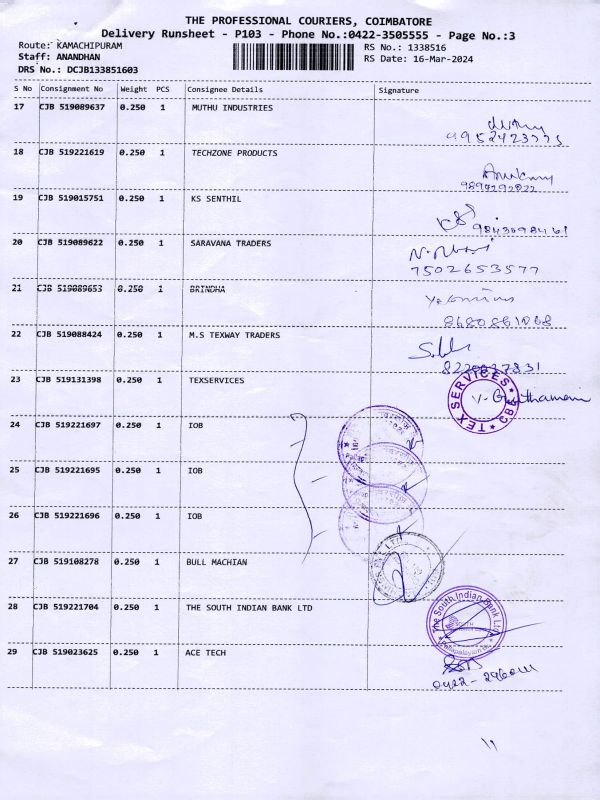 THE PROFESSIONAL COURIERS, COIMBATORE
Delivery Runsheet - P103 - Phone No.:0422-3505555 - Page No.:3
Route: KAMACHIPURAM
RS No.: 1338516
Staff: ANANDHAN
RS Date: 16-Mar-2024
DRS No.: DCJB133851603
S No Consignment No Weight PCS Consignee Details Signature
17 CJB 519089637 0.250 1 MUTHU INDUSTRIES
9952423775
18 CJB 519221619 0.250 1 TECHZONE PRODUCTS
19 CJB 519015751 1 0.250 1 KS SENTHIL
20 CJB 519089622 0.250 1 SARAVANA TRADERS
7502653577
21 CJB 519089653 0.250 1 BRINDHA
22 CJB 519088424 0.250 1 M.S TEXWAY TRADERS
23 CJB 519131398 0.250 1 TEXSERVICES
TEX SERVICES CBE
24 CJB 519221697 0.250 1 IOB
25 CJB 519221695 0.250 1 IOB
26 CJB 519221696 0.250 1 IOB
27 CJB 519108278 0.250 1 BULL MACHIAN
28 CJB 519221704 0.250 1 THE SOUTH INDIAN BANK LTD
The South Indian Bank Ltd
29 CJB 519023625 0.250 1 ACE TECH